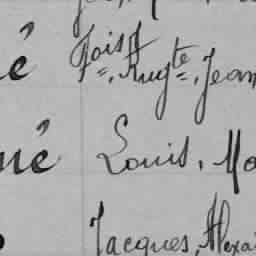 é Fois, Aug^te, Jean
né Louis, Ma
Jacques, Alexa